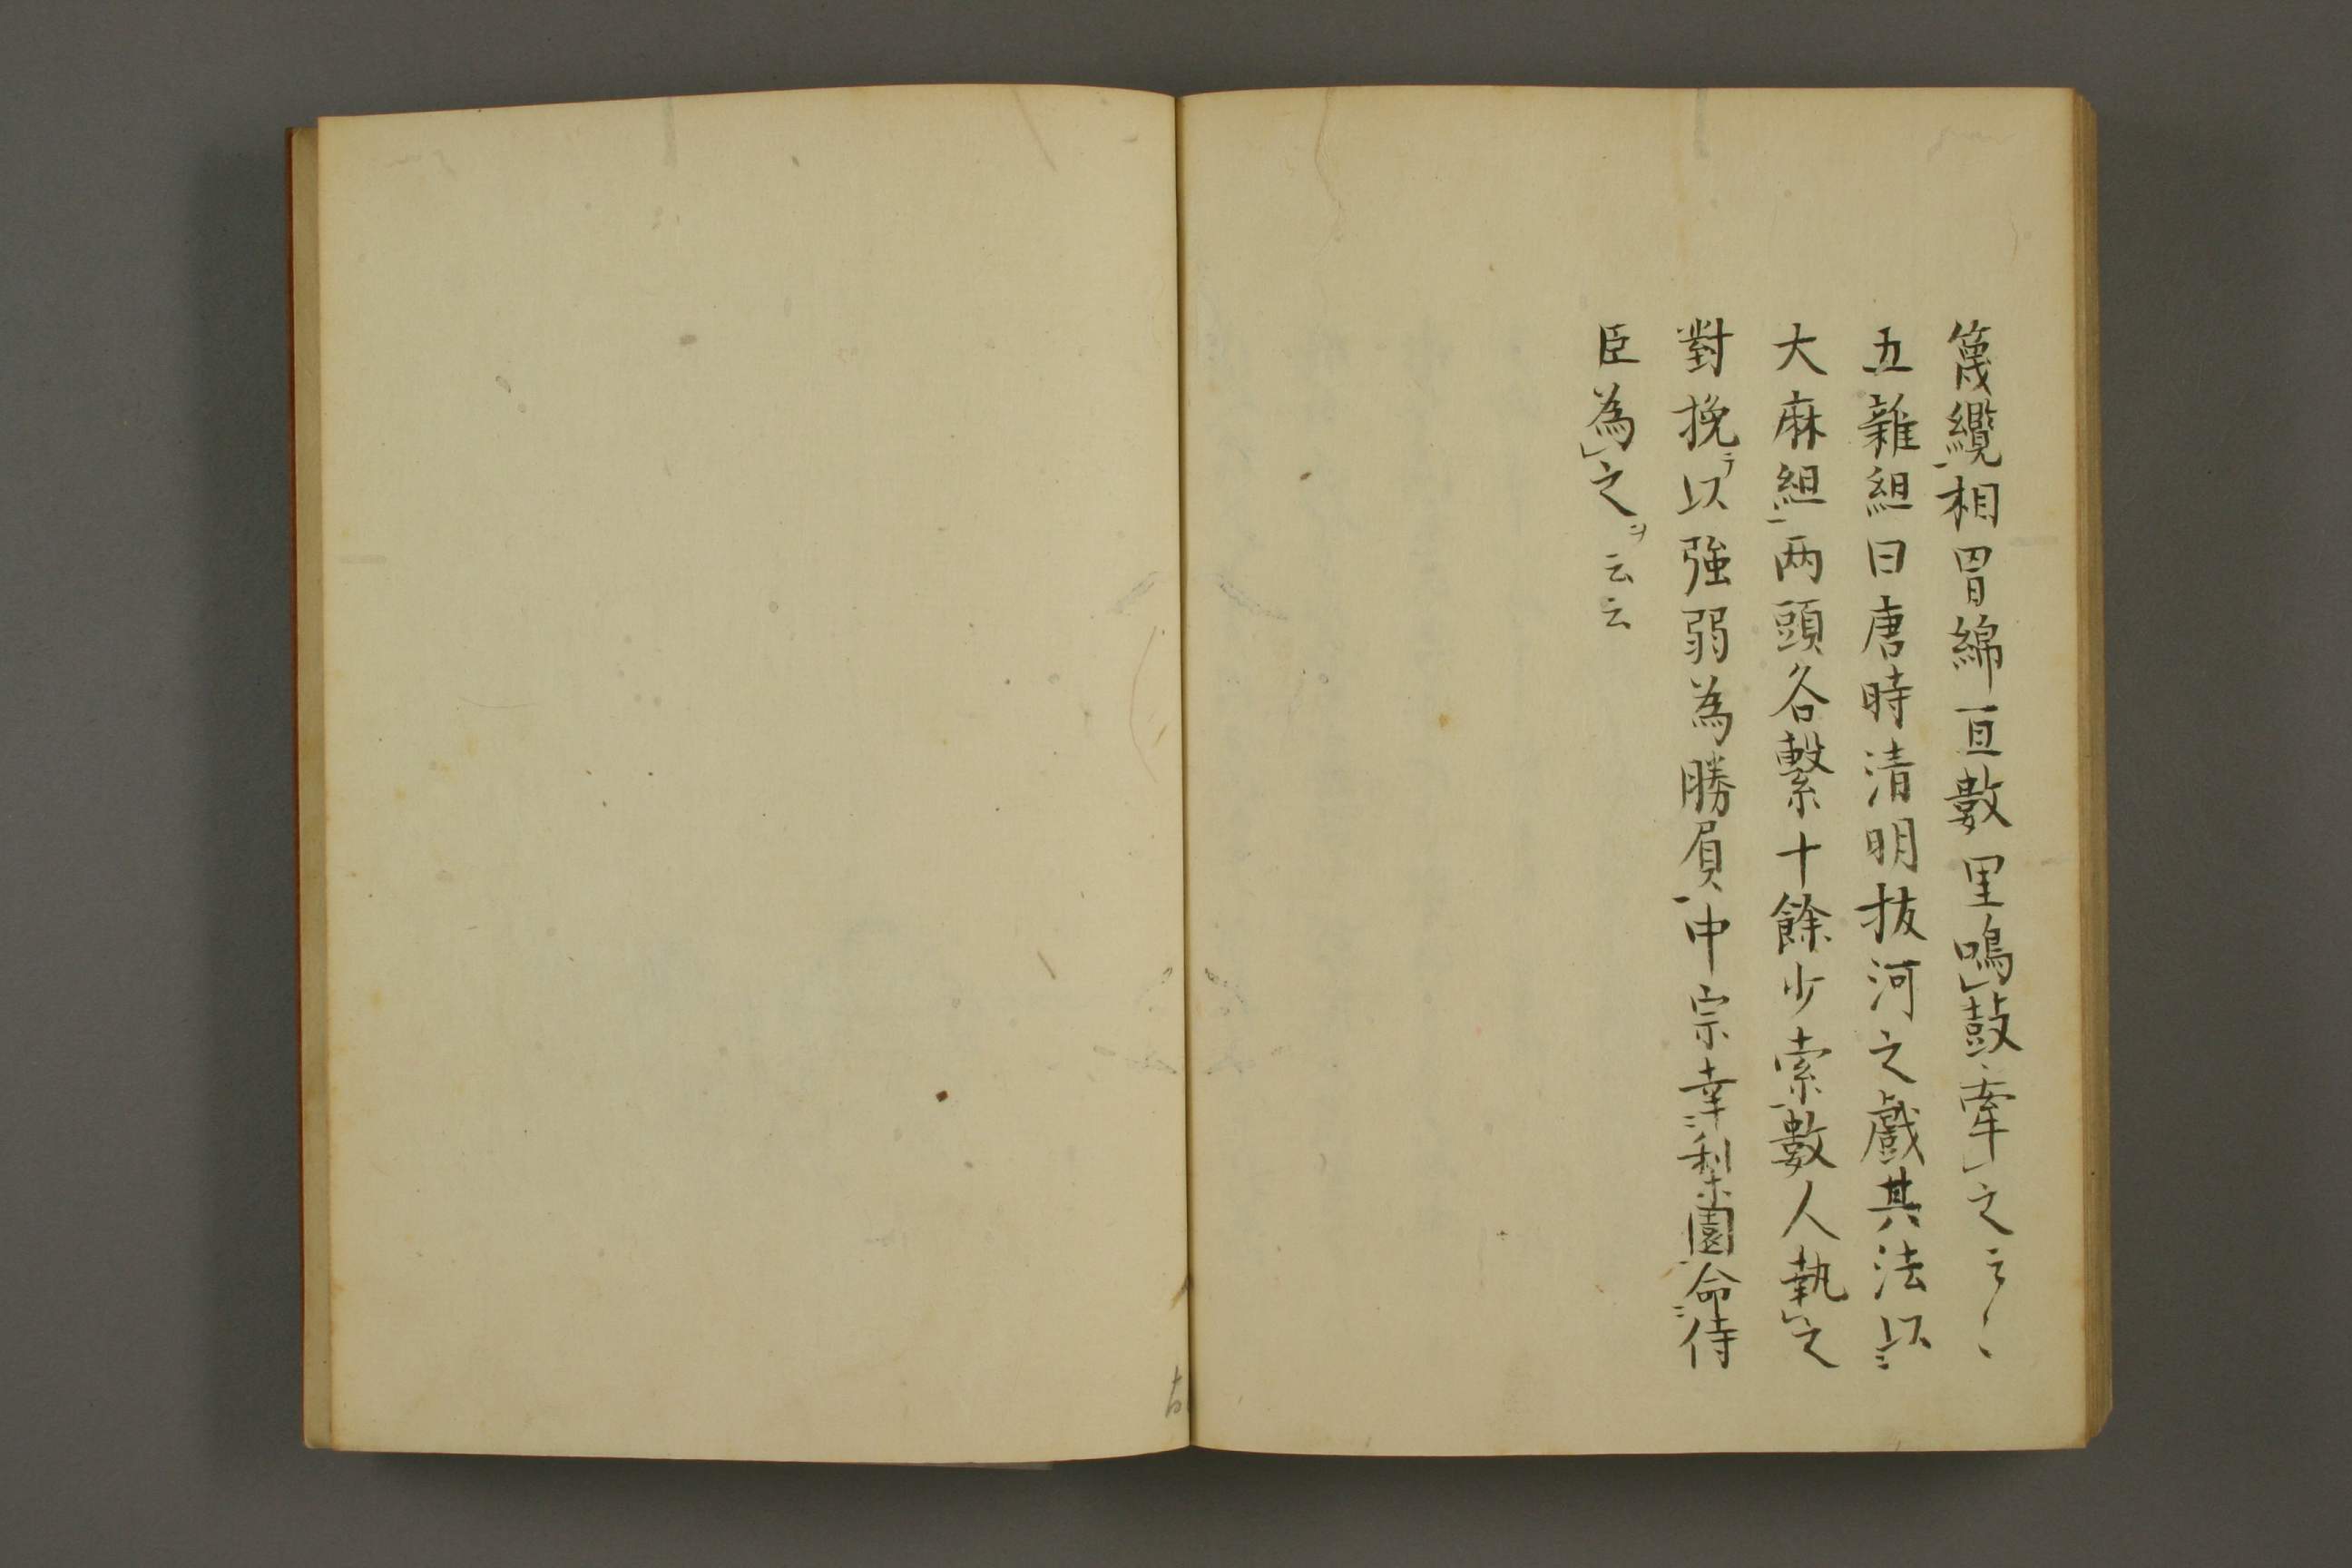 篾纜相罥綿亘數里鳴鼓牽之云〻
五雜組曰唐時清明拔河之戲其法以
大麻組両頭各繫十餘少索數人執之
對挽以強弱為勝負中宗幸梨園命侍
臣為之云云